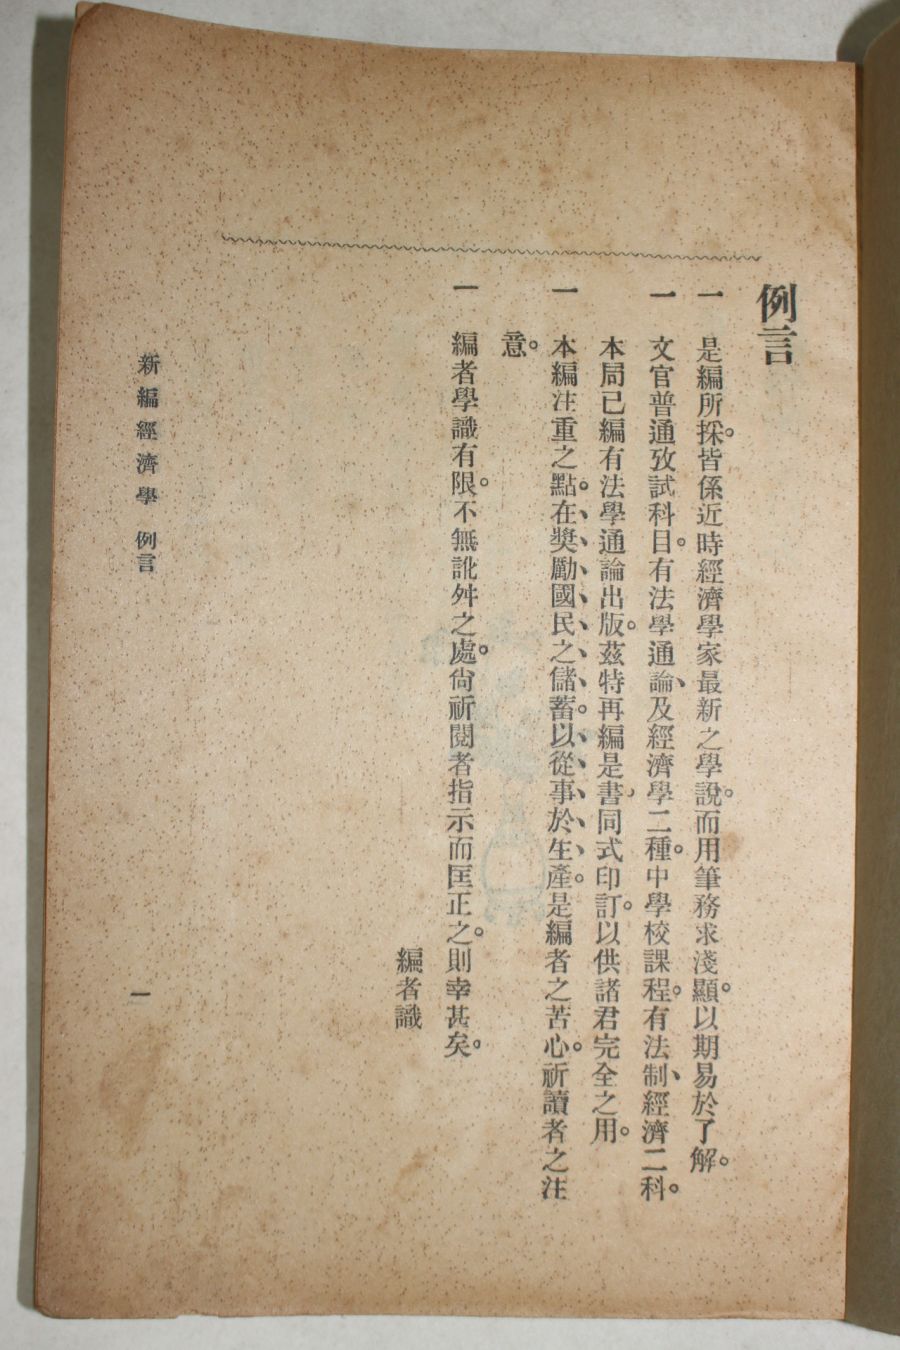 例言
一 是編所採。皆係近時經濟學家最新之學說。而用筆務求淺顯。以期易於了解。
一 文官普通攷試科目。有法學通論、及經濟學二種。中學校課程。有法制、經濟二科。
本局已編有法學通論出版。茲特再編是書、同式印訂。以供諸君完全之用。
一 本編注重之點。在獎勵國民之儲蓄。以從事於生產。是編者之苦心。祈讀者之注
意。
一 編者學識有限。不無訛舛之處。尙祈閱者指示而匡正之。則幸甚矣。
編者識
新編經濟學 例言
一